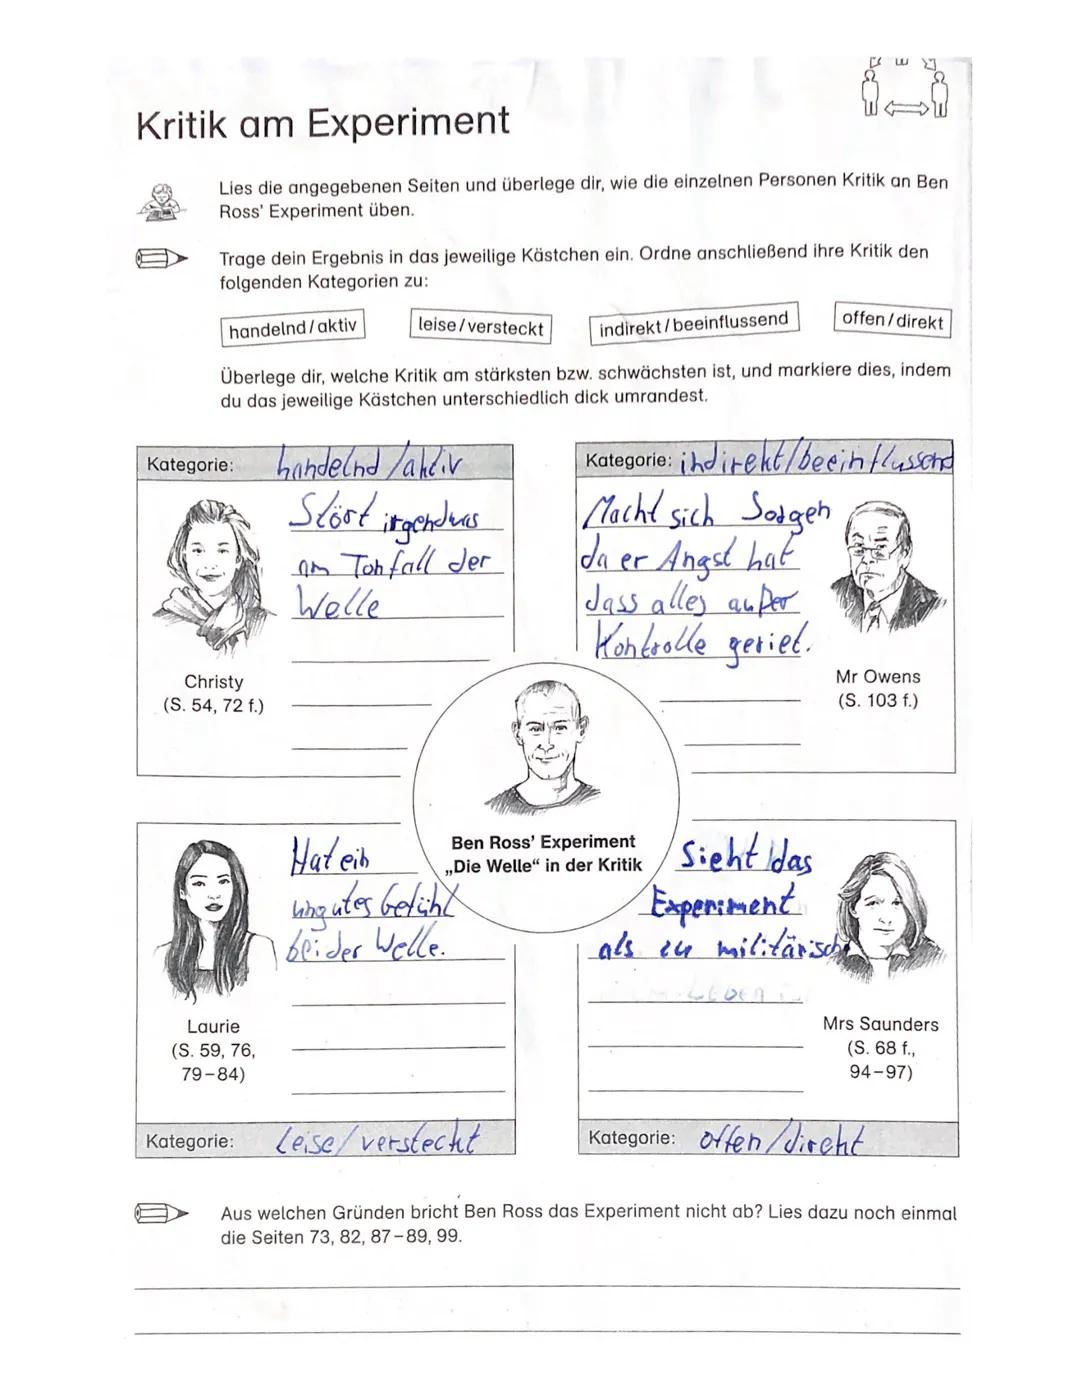 Kritik am Experiment
Lies die angegebenen Seiten und überlege dir, wie die einzelnen Personen Kritik an Ben
Ross' Experiment üben.
Trage dein Ergebnis in das jeweilige Kästchen ein. Ordne anschließend ihre Kritik den
folgenden Kategorien zu:
handelnd/aktiv
leise/versteckt
indirekt/beeinflussend
offen/direkt
Überlege dir, welche Kritik am stärksten bzw. schwächsten ist, und markiere dies, indem
du das jeweilige Kästchen unterschiedlich dick umrandest.
Kategorie: handelnd/aktiv
Stört irgendwas
am Tonfall der
Welle
Christy
(S. 54, 72 f.)
Kategorie: indirekt/beeinflussend
Macht sich Sorgen
da er Angst hat
dass alles außer
Kontrolle geriet.
Mr Owens
(S. 103 f.)
Ben Ross' Experiment
„Die Welle“ in der Kritik
Hat ein
ungutes Gefühl
bei der Welle.
Laurie
(S. 59, 76,
79–84)
Kategorie: Leise/versteckt
Sieht das
Experiment
als zu militärisch
Mrs Saunders
(S. 68 f.,
94–97)
Kategorie: offen/direkt
Aus welchen Gründen bricht Ben Ross das Experiment nicht ab? Lies dazu noch einmal
die Seiten 73, 82, 87–89, 99.